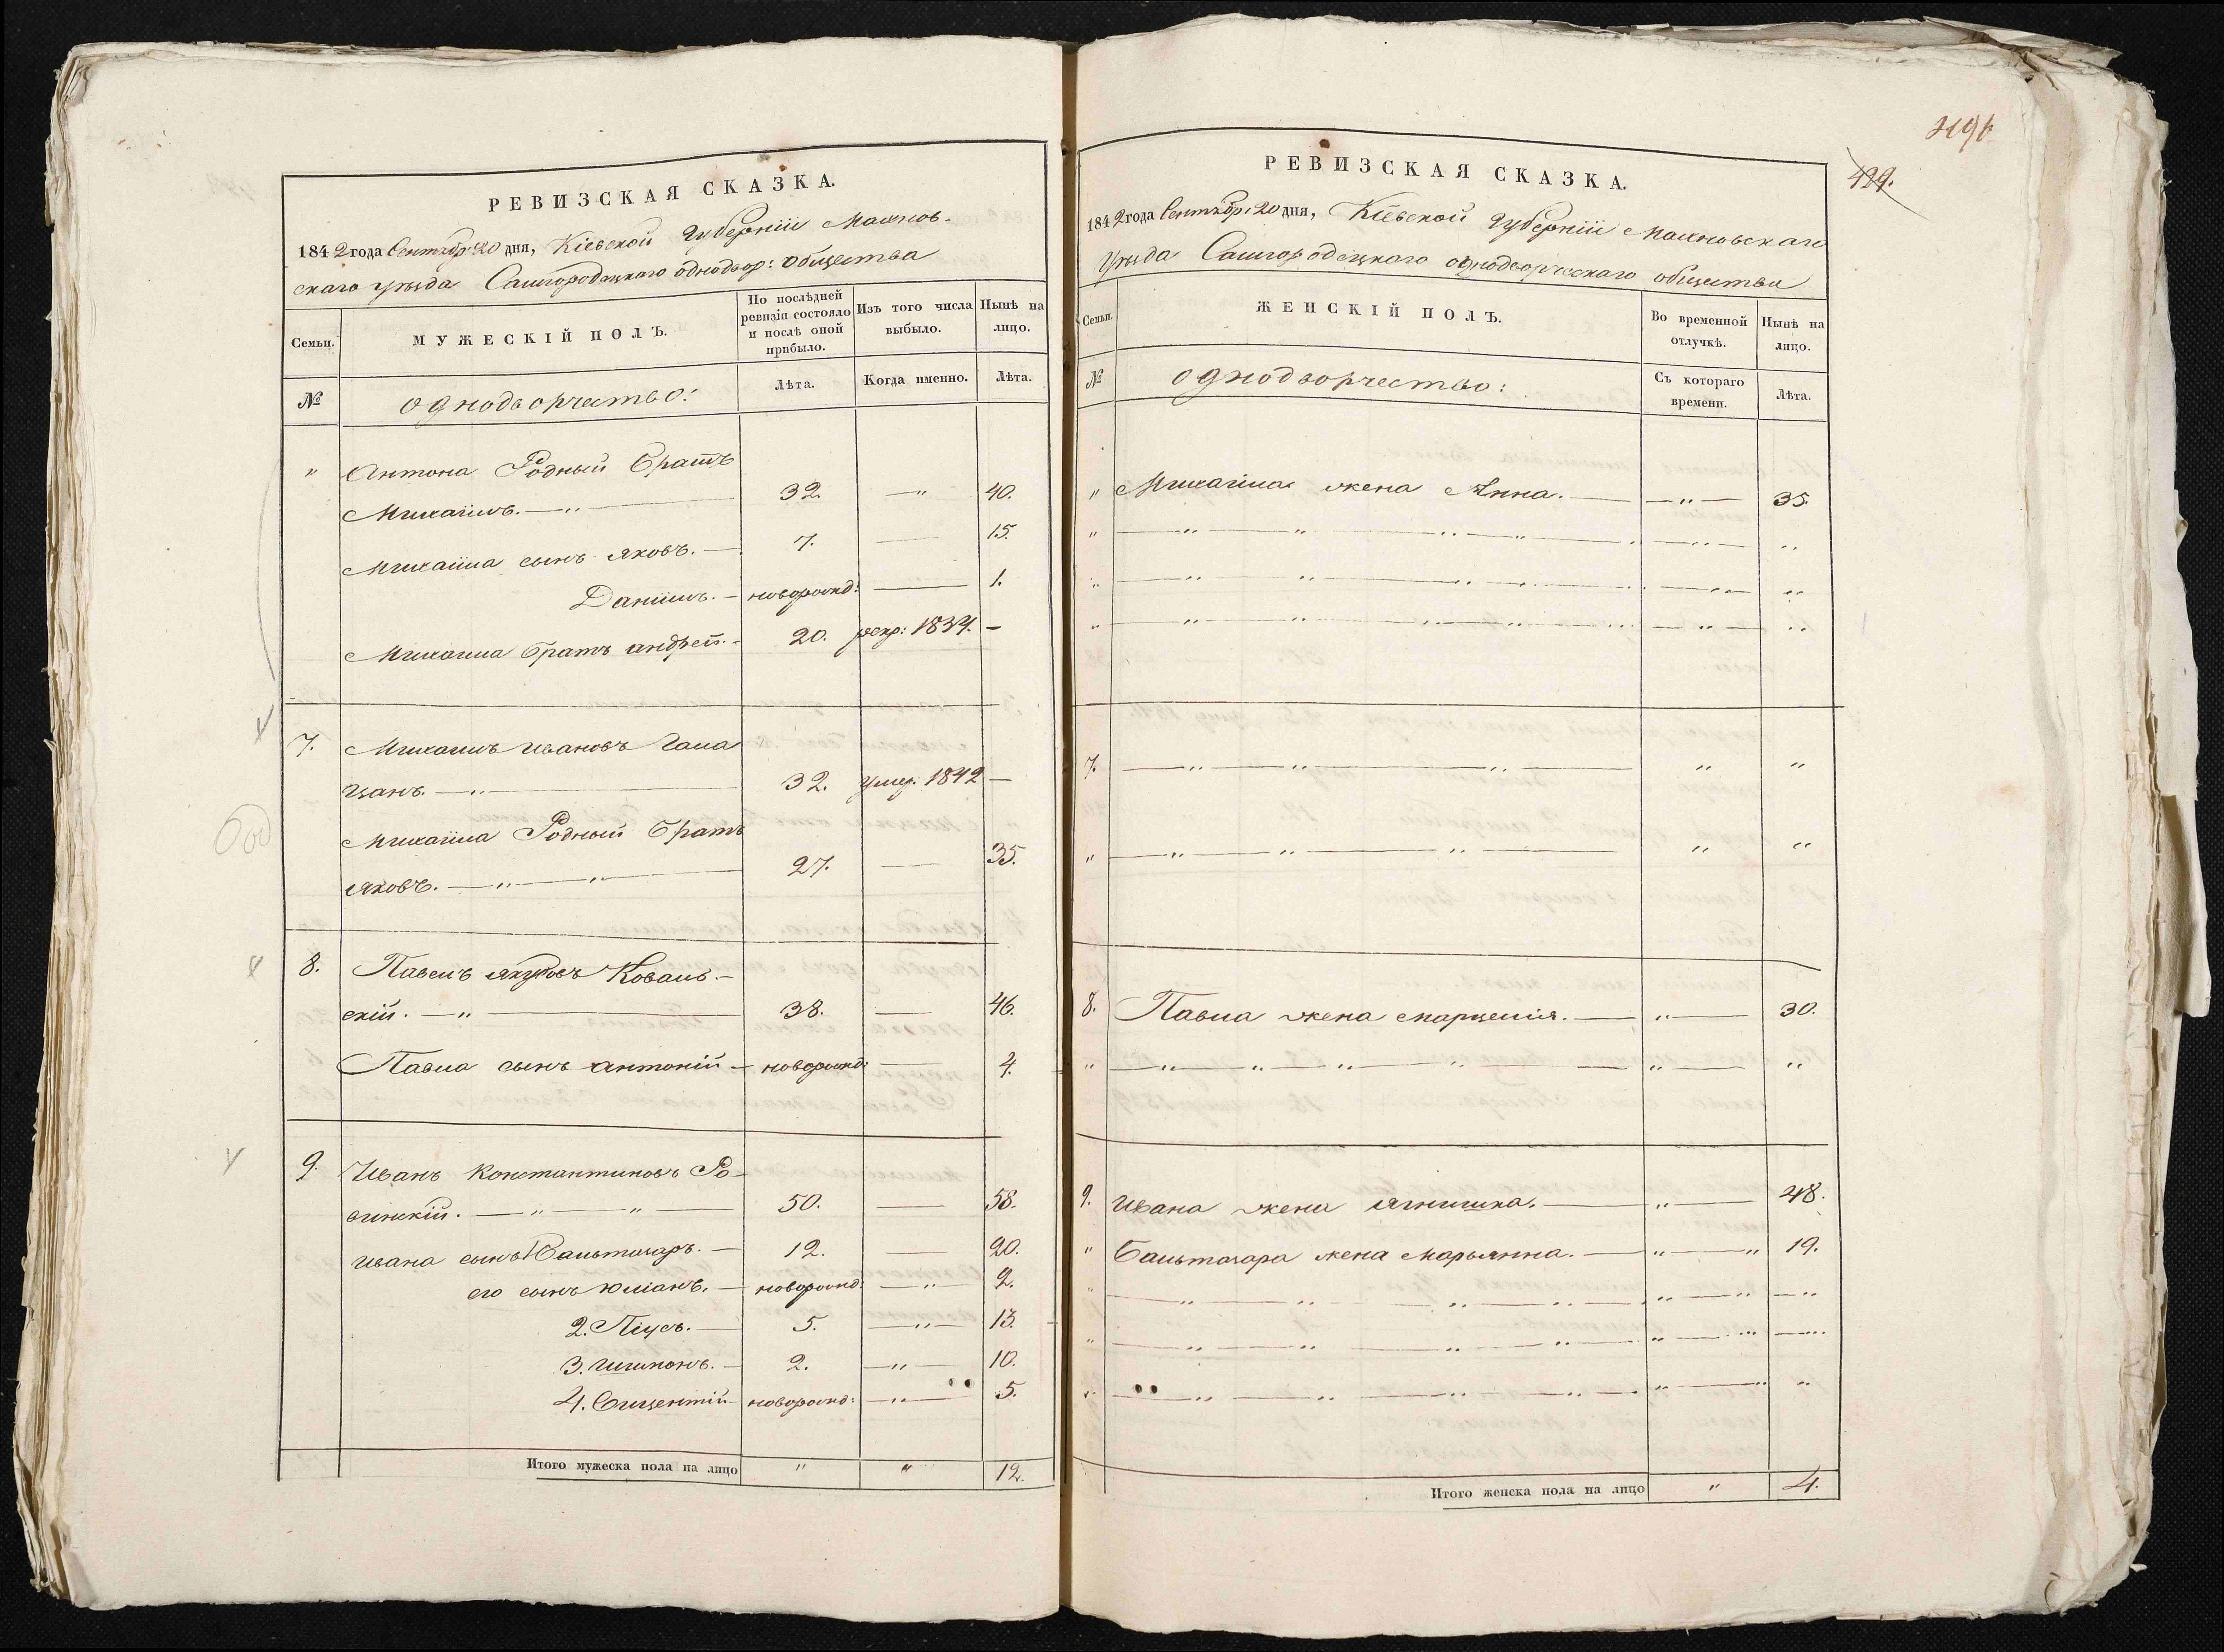 РЕВИЗСКАЯ СКАЗКА.
1842 года Сентябр: 20 дня, Кіевской Губерніи Махнов-
скаго уѣзда Самгородецкаго однодвор: общества
Семьи.
МУЖЕСКІЙ ПОЛЪ.
По послѣдней ревизіи состояло и послѣ оной прибыло.
Изъ того числа выбыло.
Нынѣ на лицо.
№
однодворчество:
Лѣта.
Когда именно.
Лѣта.
" Антона Родный братъ
Михаилъ. — " — 32. — " 40.
Михаила сынъ Яковъ. — 7. — 15.
Даніилъ. — новорожд: — 1.
Михаила братъ андрей. — 20. рекр: 1834. —
7. Михаилъ Ивановъ
цанъ. — " — 32. умер. 1842 —
Михаила Родный братъ
Яковъ. — " — " — 27. — 35.
8. Павелъ Якубовъ Коваль-
скій. — " — 38. — 46.
Павла сынъ антоній — новорожд: — 4.
9. Иванъ Константиновъ Ро-
синскій. — " — " — 50. — 58.
Ивана сынъ 1 Бальтазаръ. — 12. — 20.
его сынъ Юліанъ. — новорожд: — " — 2.
2. Піусъ. — 5. — " — 13.
3. Шимонъ. — 2. — " — 10.
4. Вицентій — новорожд: — " — 5.
Итого мужеска пола на лицо " " 12.
496
429.
РЕВИЗСКАЯ СКАЗКА.
1842 года Сентябр: 20 дня, Кіевской Губерніи Махновскаго
Уѣзда Самгородецкаго однодворческаго общества
Семьи.
ЖЕНСКІЙ ПОЛЪ.
Во временной отлучкѣ.
Нынѣ на лицо.
№
однодворчество:
Съ котораго времени.
Лѣта.
" Михаила жена Анна. — — " — 35.
" — " — " — " — " — — " — "
" — " — " — " — " — — " — "
" — " — " — " — " — — " — "
7. — " — " — " — " "
" — " — " — " — " "
8. Павла жена Марцелія. — " — 30.
" — " — " — " — " — " — "
9. Ивана жена Ягнишка. — " — 48.
" Бальтазара жена Марьянна. — " — " 19.
" — " — " — " — " — " — " — "
" — " — " — " — " — " — " — "
" — " — " — " — " — " — " "
Итого женска пола на лицо " 4.